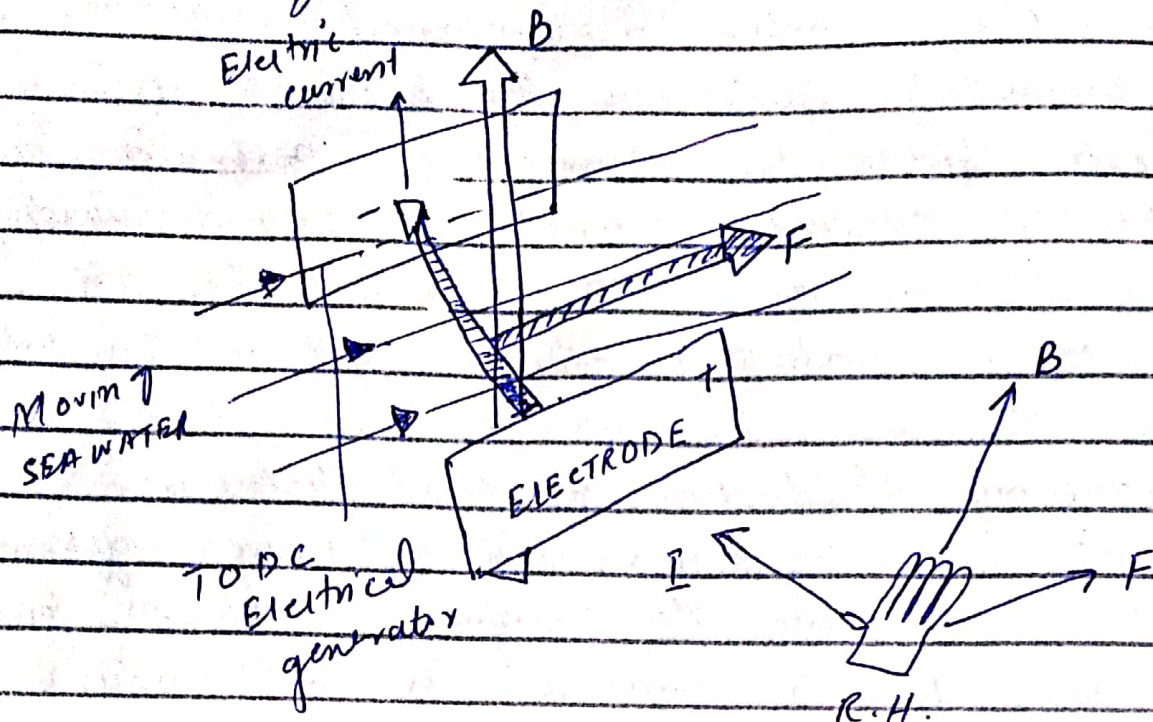 B
Electric
current
F
Moving
SEA WATER
+
ELECTRODE
B
TO DC
Electrical
generator
I
F
R.H.